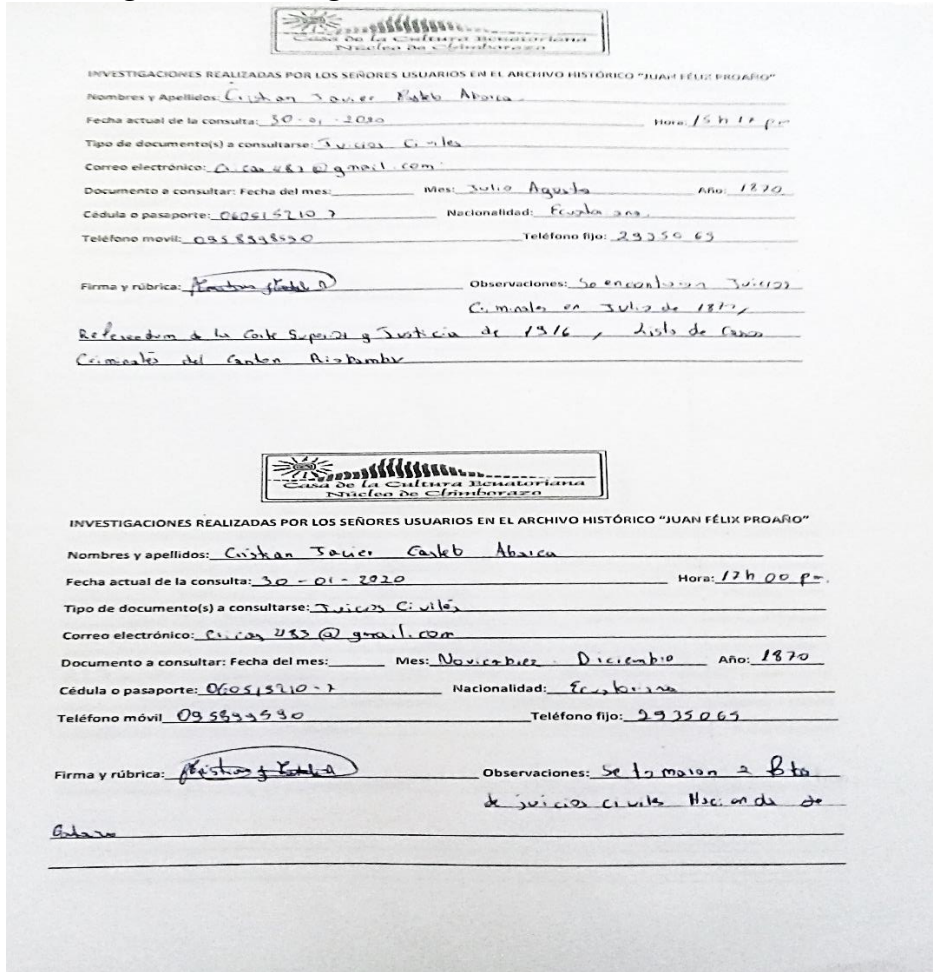 Casa de la Cultura Ecuatoriana
Núcleo de Chimborazo
INVESTIGACIONES REALIZADAS POR LOS SEÑORES USUARIOS EN EL ARCHIVO HISTÓRICO "JUAN FÉLIX PROAÑO"
Nombres y Apellidos: Cristian Javier Abarca
Fecha actual de la consulta: 30-01-2020 Hora:
Tipo de documento(s) a consultarse: Juicios Civiles
Correo electrónico: @gmail.com
Documento a consultar: Fecha del mes: Mes: Julio Agosto Año: 1870
Cédula o pasaporte: Nacionalidad: Ecuatoriana
Teléfono movil: Teléfono fijo: 2935065
Firma y rúbrica: Observaciones: Se encontraron Juicios
Criminales en Julio de
Referendum de la Corte Superior y Justicia de 1916, Lista de Casos
Criminales del Canton Riobamba
Casa de la Cultura Ecuatoriana
Núcleo de Chimborazo
INVESTIGACIONES REALIZADAS POR LOS SEÑORES USUARIOS EN EL ARCHIVO HISTÓRICO "JUAN FÉLIX PROAÑO"
Nombres y apellidos: Cristian Javier Abarca
Fecha actual de la consulta: 30-01-2020 Hora: 17h00 pm.
Tipo de documento(s) a consultarse: Juicios Civiles
Correo electrónico: @gmail.com
Documento a consultar: Fecha del mes: Mes: Noviembre Diciembre Año: 1870
Cédula o pasaporte: Nacionalidad: Ecuatoriana
Teléfono móvil Teléfono fijo: 2935065
Firma y rúbrica: Observaciones: Se tomaron 2
de juicios civiles Hacienda de